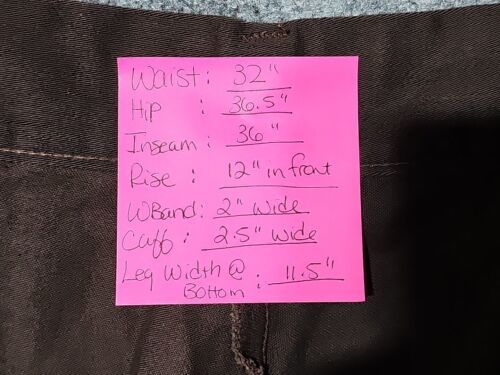 Waist: 32"
Hip : 36.5"
Inseam: 36"
Rise : 12" in front
WBand: 2" wide
Cuff : 2.5" wide
Leg Width @
Bottom : 11.5"